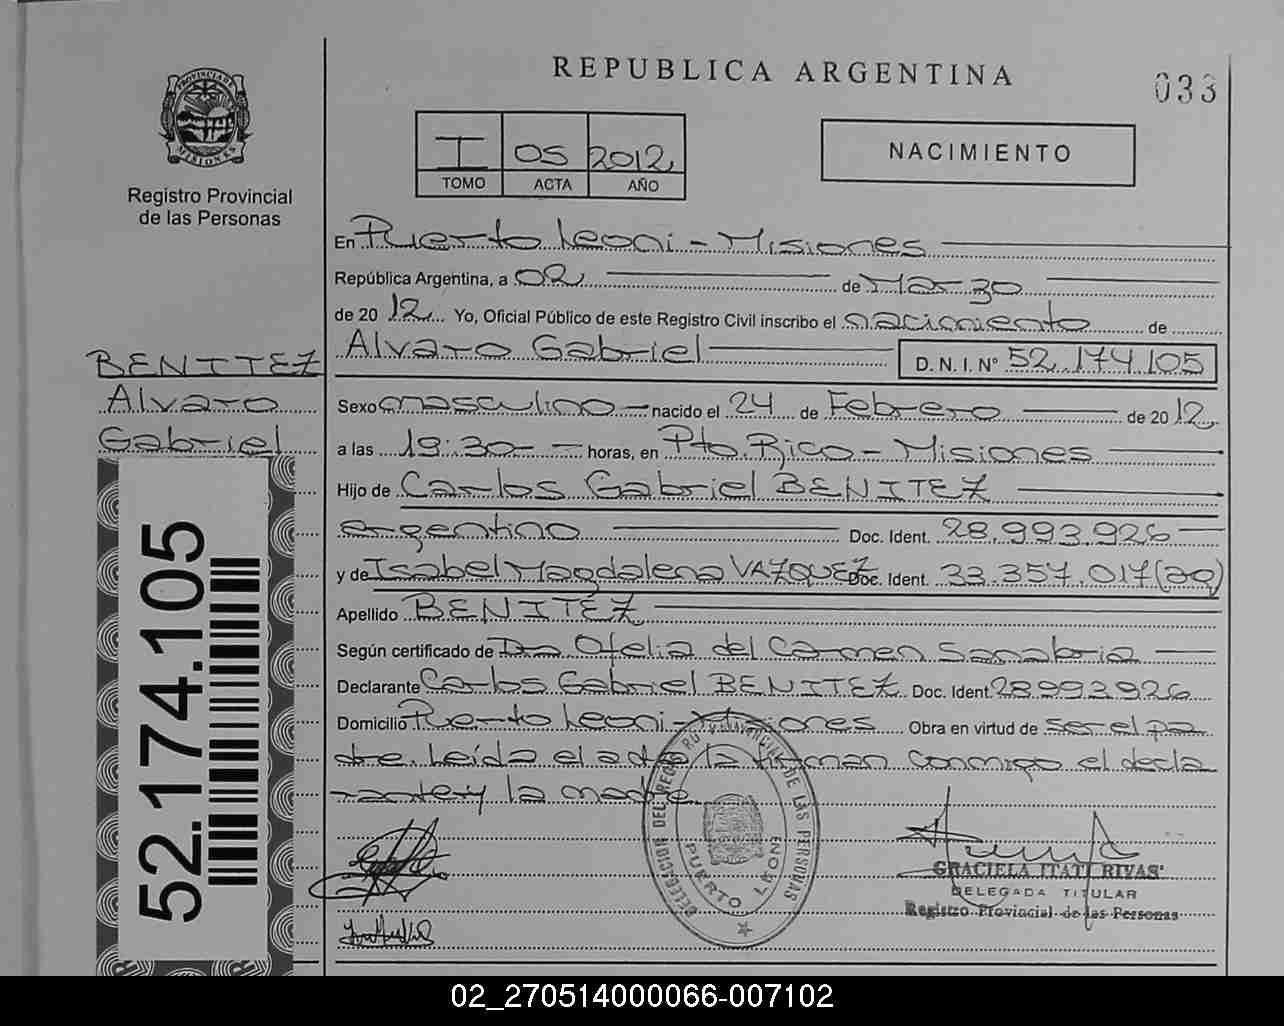 REPUBLICA ARGENTINA
033
PROVINCIA DE MISIONES
Registro Provincial
de las Personas
I 05 2012
TOMO ACTA AÑO
NACIMIENTO
En Puerto Leoni - Misiones
República Argentina, a 02 de Marzo
de 2012 Yo, Oficial Público de este Registro Civil inscribo el nacimiento de
Alvaro Gabriel D.N.I. Nº 52.174.105
BENITEZ
Alvaro
Gabriel
Sexo masculino nacido el 24 de Febrero de 2012
a las 19:30 horas, en Pto. Rico - Misiones
Hijo de Carlos Gabriel BENITEZ
argentino Doc. Ident. 28.993.926
y de Isabel Magdalena VAZQUEZ Doc. Ident. 33.357.017 (ag)
Apellido BENITEZ
Según certificado de Dra Ofelia del Carmen Sanabria
Declarante Carlos Gabriel BENITEZ Doc. Ident. 28993926
Domicilio Puerto Leoni - Misiones Obra en virtud de ser el pa
dre. Leída el acta la firman conmigo el decla
rante y la madre.
52.174.105
DELEGACION DEL REGISTRO PROVINCIAL DE LAS PERSONAS
PUERTO LEONI
GRACIELA ITATI RIVAS
DELEGADA TITULAR
Registro Provincial de las Personas
02_270514000066-007102